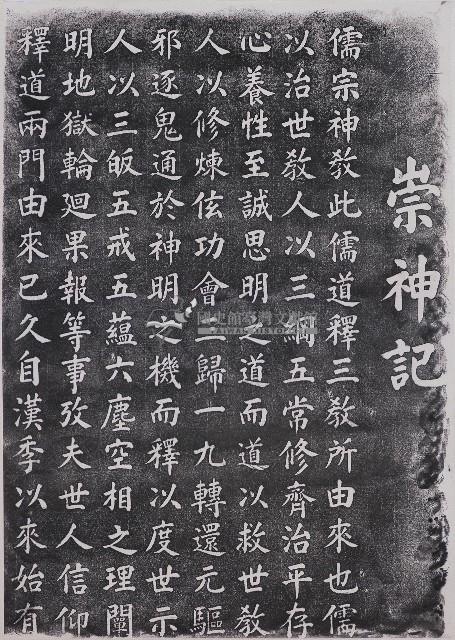 崇神記
儒宗神教此儒道釋三教所由來也儒
以治世教人以三綱五常修齊治平存
心養性至誠思明之道而道以救世教
人以修煉伭功會三歸一九轉還元驅
邪逐鬼通於神明之機而釋以度世示
人以三皈五戒五蘊六塵空相之理闡
明地獄輪廻果報等事攷夫世人信仰
釋道兩門由來已久自漢季以來始有
國史館臺灣文獻館